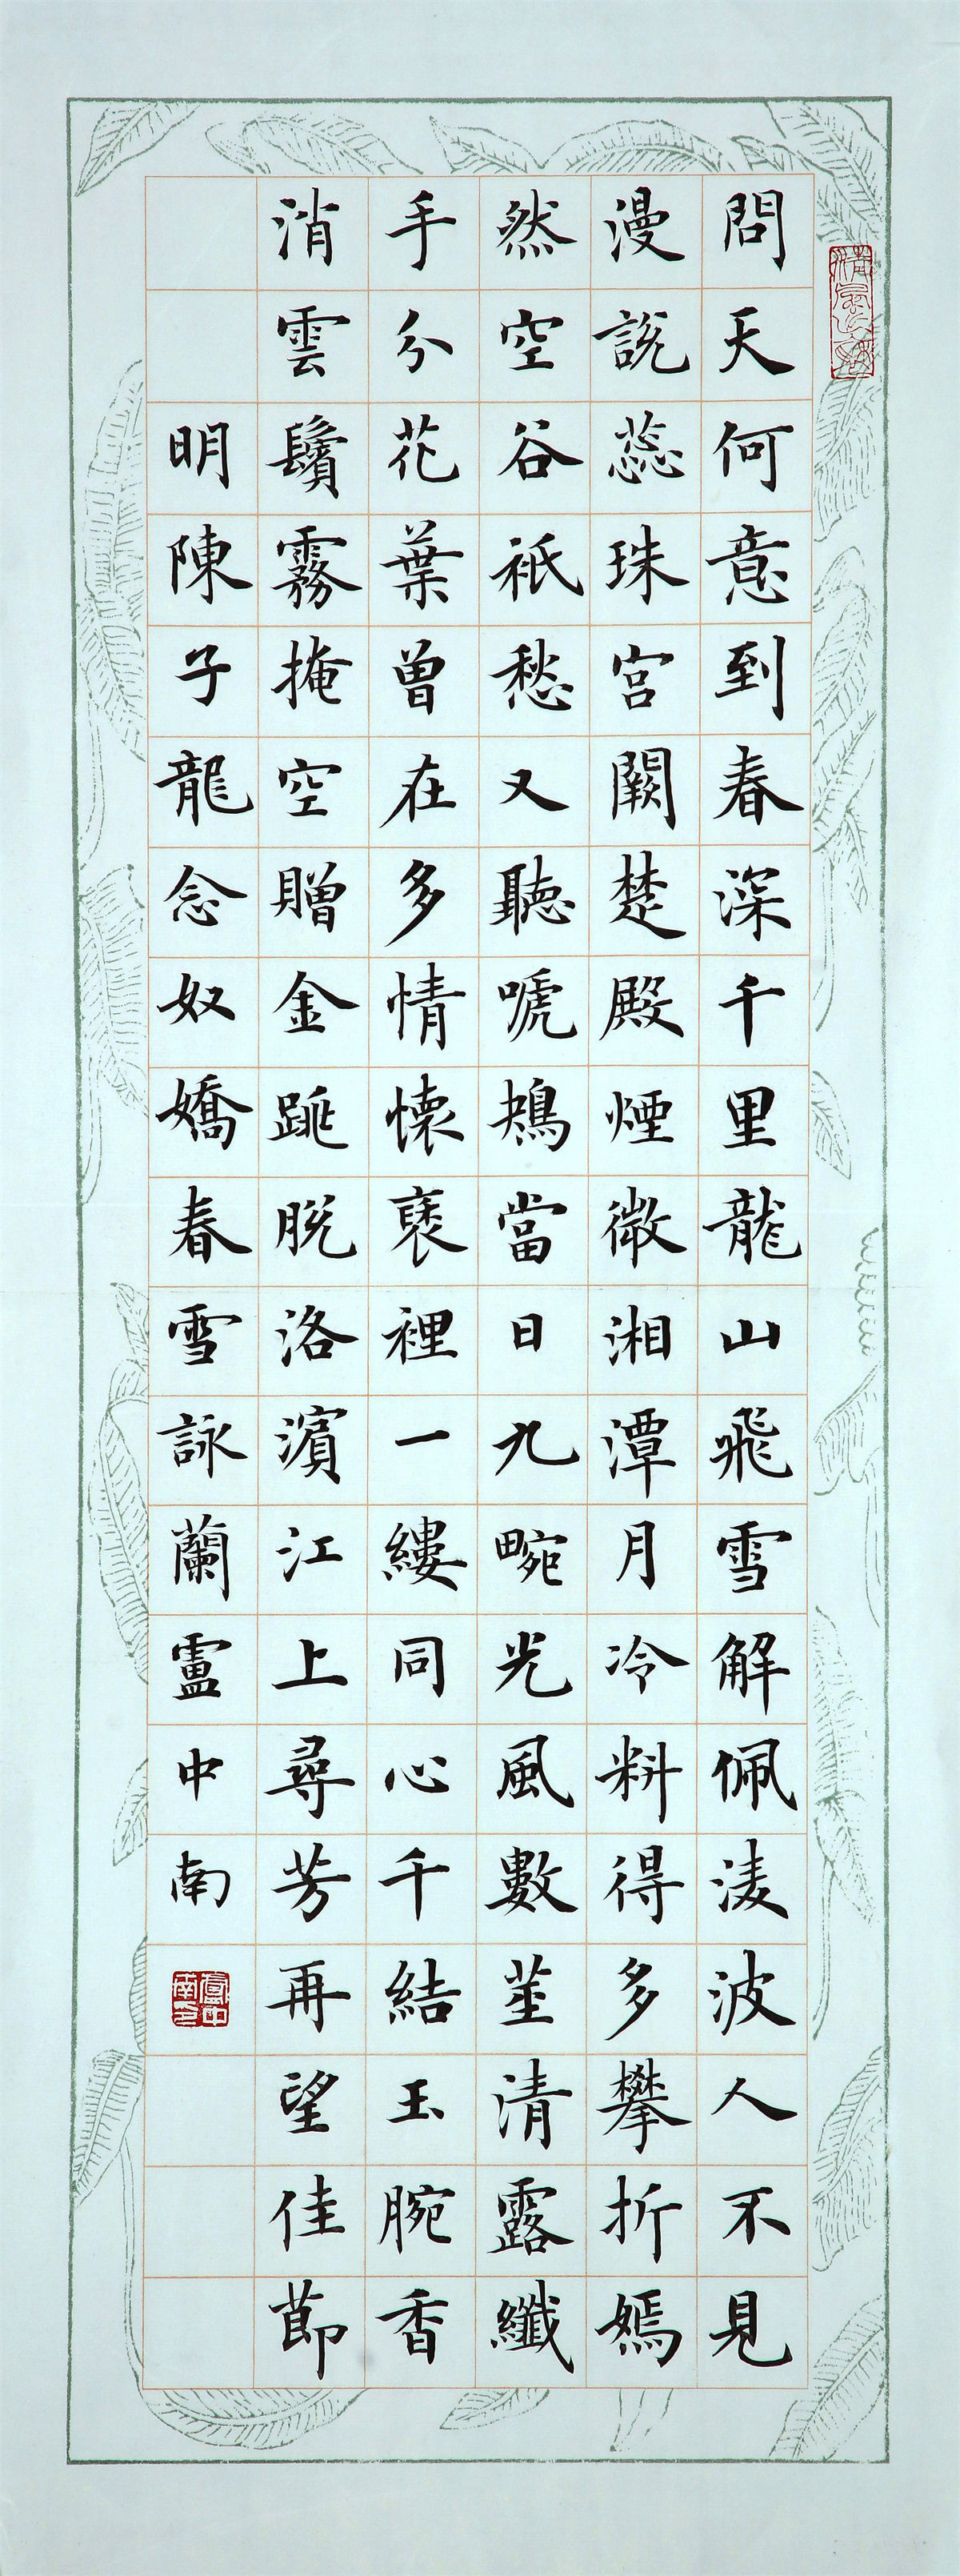 問天何意到春深千里龍山飛雪解佩淩波人不見
漫說蕊珠宮闕楚殿煙微湘潭月冷料得多攀折嫣
然空谷祇愁又聽嗁鴂當日九畹光風數莖清露纖
手分花葉曾在多情懷裒裡一縷同心千結玉腕香
消雲鬢霧掩空贈金跳脫洛濱江上尋芳再望佳節
明陳子龍念奴嬌春雪詠蘭盧中南
盧中南印